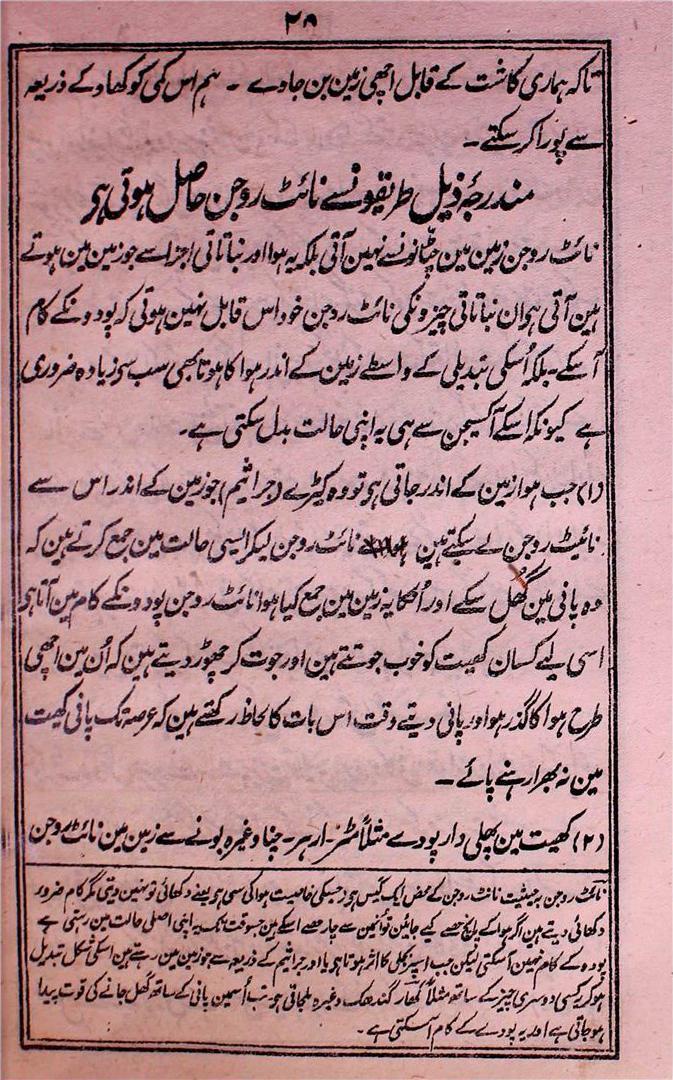 ۲۵
تاکہ ہماری کاشت کے قابل اچھی زمین بن جاوے ۔ ہم اس کمی کو کھاد کے ذریعہ
سے پورا کر سکتے ۔
مندرجۂ ذیل طریقونسے نائٹ روجن حاصل ہوتی ہی
نائٹ روجن زمین مین چٹانونسے نہین آتی بلکہ یہ ہوا اور نباتاتی اجزا سے جو زمین مین ہوتے
ہین آتی ہی ان نباتاتی چیزونکی نائٹ روجن خود اس قابل نہین ہوتی کہ پودونکے کام
آسکے ۔ بلکہ اُسکی تبدیلی کے واسطے زمین کے اندر ہوا کا ہونا بھی سب سی زیادہ ضروری
ہے کیونکہ اسکے آکسیجن سے ہی یہ اپنی حالت بدل سکتی ہے ۔
(۱) جب ہوا زمین کے اندر جاتی ہو تو وہ کیڑے (جراثیم) جو زمین کے اندر اس سے
نائیٹ روجن لے سکتے ہین نائٹ روجن لیکر ایسی حالت مین جمع کرتے ہین کہ
وہ پانی مین گھل سکے اور اُنکا یہ زمین مین جمع کیا ہوا نائٹ روجن پودونکے کام مین آتا ہی
اسی لیے کسان کھیت کو خوب جوتتے ہین اور جوت کر چھوڑ دیتے ہین کہ اُن مین اچھی
طرح ہوا کا گذر ہو اور پانی دیتے وقت اس بات کا لحاظ رکھتے ہین کہ عرصہ تک پانی کھیت
مین نہ بھرا رہنے پائے ۔
(۲) کھیت مین پھلی دار پودے مثلاً مٹر ۔ ارہر ۔ چنا وغیرہ بونے سے زمین مین نائٹ روجن
نائٹ روجن بہ حیثیت نائٹ روجن کے محض ایک گیس ہو جسکی خاصیت ہوا کی سی ہو یعنے دکھائی تو نہین دیتی مگر کام ضرور
دکھائی دیتے ہین اگر ہوا کے پانچ حصے کیے جائین تو اُنمین سے چار حصے اسکے ہین جسوقت تک یہ اپنی اصلی حالت مین رہتی ہے
پودہ کے کام نہین آسکتی لیکن جب اسپر بجلی کا اثر ہوتا ہو یا اور جراثیم کے ذریعہ سے جو زمین مین رہتے ہین اسکی شکل تبدیل
ہو کر کسی دوسری چیز کے ساتھ مثلاً کھار گندھک وغیرہ ملجاتی ہو تب اُسمین پانی کے ساتھ گھل جانے کی قوت پیدا
ہو جاتی ہے اور یہ پودے کے کام آسکتی ہے ۔